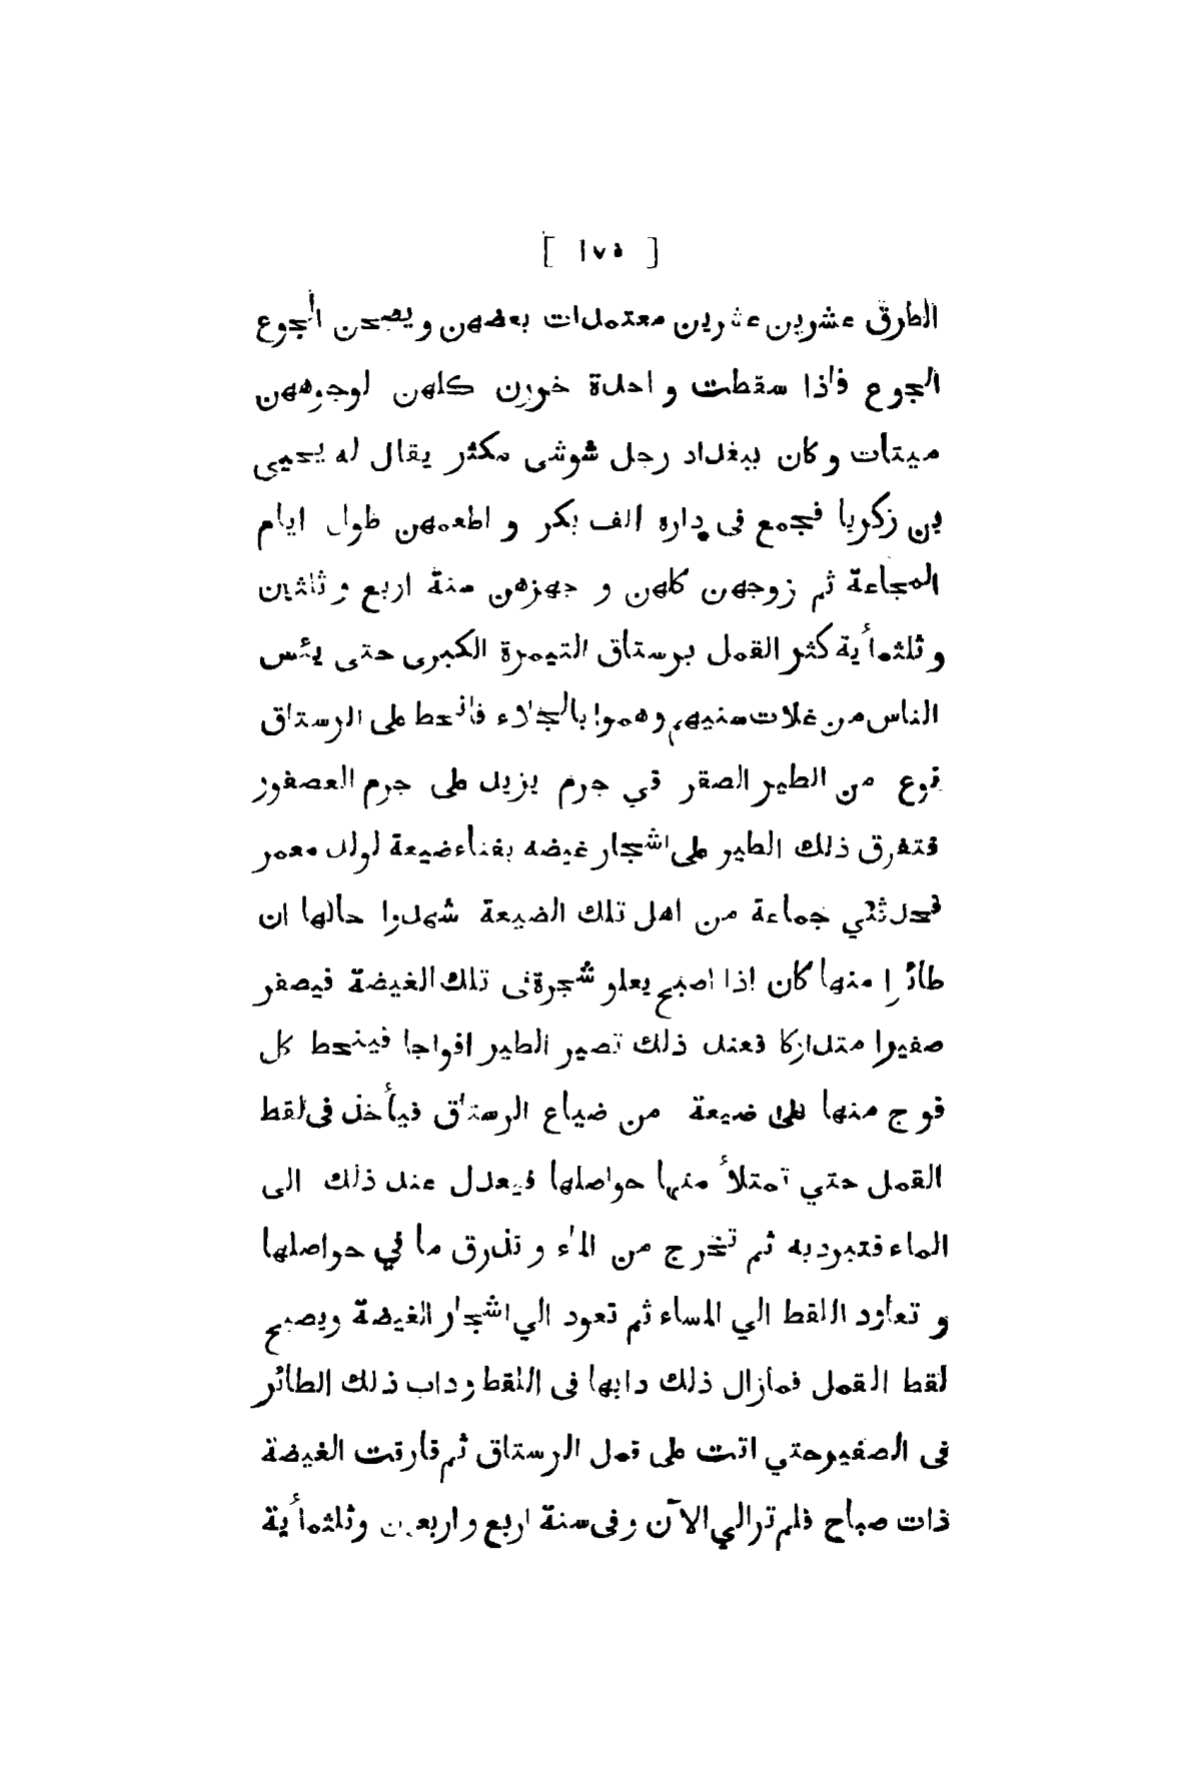 [ ١٧٥ ]
الطرق عشرين عشرين معتمدات بعضهن ويصحن الجوع
الجوع فاذا سقطت واحدة خررن كلهن لوجوههن
ميتات وكان ببغداد رجل شوشى مكثر يقال له يحيى
بن زكريا فجمع فى داره الف بكر و اطعمهن طول ايام
المجاعة ثم زوجهن كلهن و جهزهن سنة اربع و ثلثين
و ثلثمأية كثر القمل برستاق التيمرة الكبرى حتى يئس
الناس من غلات سنيهم وهموا بالجلاء فانحط على الرستاق
نوع من الطير الصقر في جرم يزيد على جرم العصفور
فتفرق ذلك الطير على اشجار غيضه بفناء ضيعة لولد معمر
فحدثني جماعة من اهل تلك الضيعة شهدوا حالها ان
طائرا منها كان اذا اصبح يعلو شجرة فى تلك الغيضة فيصفر
صفيرا متداركا فعند ذلك تصير الطير افواجا فينحط كل
فوج منها على ضيعة من ضياع الرستاق فيأخذ فى لقط
القمل حتي تمتلأ منها حواصلها فيعدل عند ذلك الى
الماء فتبرد به ثم تخرج من الماء و تذرق ما في حواصلها
و تعاود اللقط الي المساء ثم تعود الي اشجار الغيضة ويصبح
لقط القمل فمازال ذلك دابها فى اللقط وداب ذلك الطائر
فى الصفير حتي اتت على قمل الرستاق ثم فارقت الغيضة
ذات صباح فلم تر الي الآن وفى سنة اربع واربعين وثلثمأية